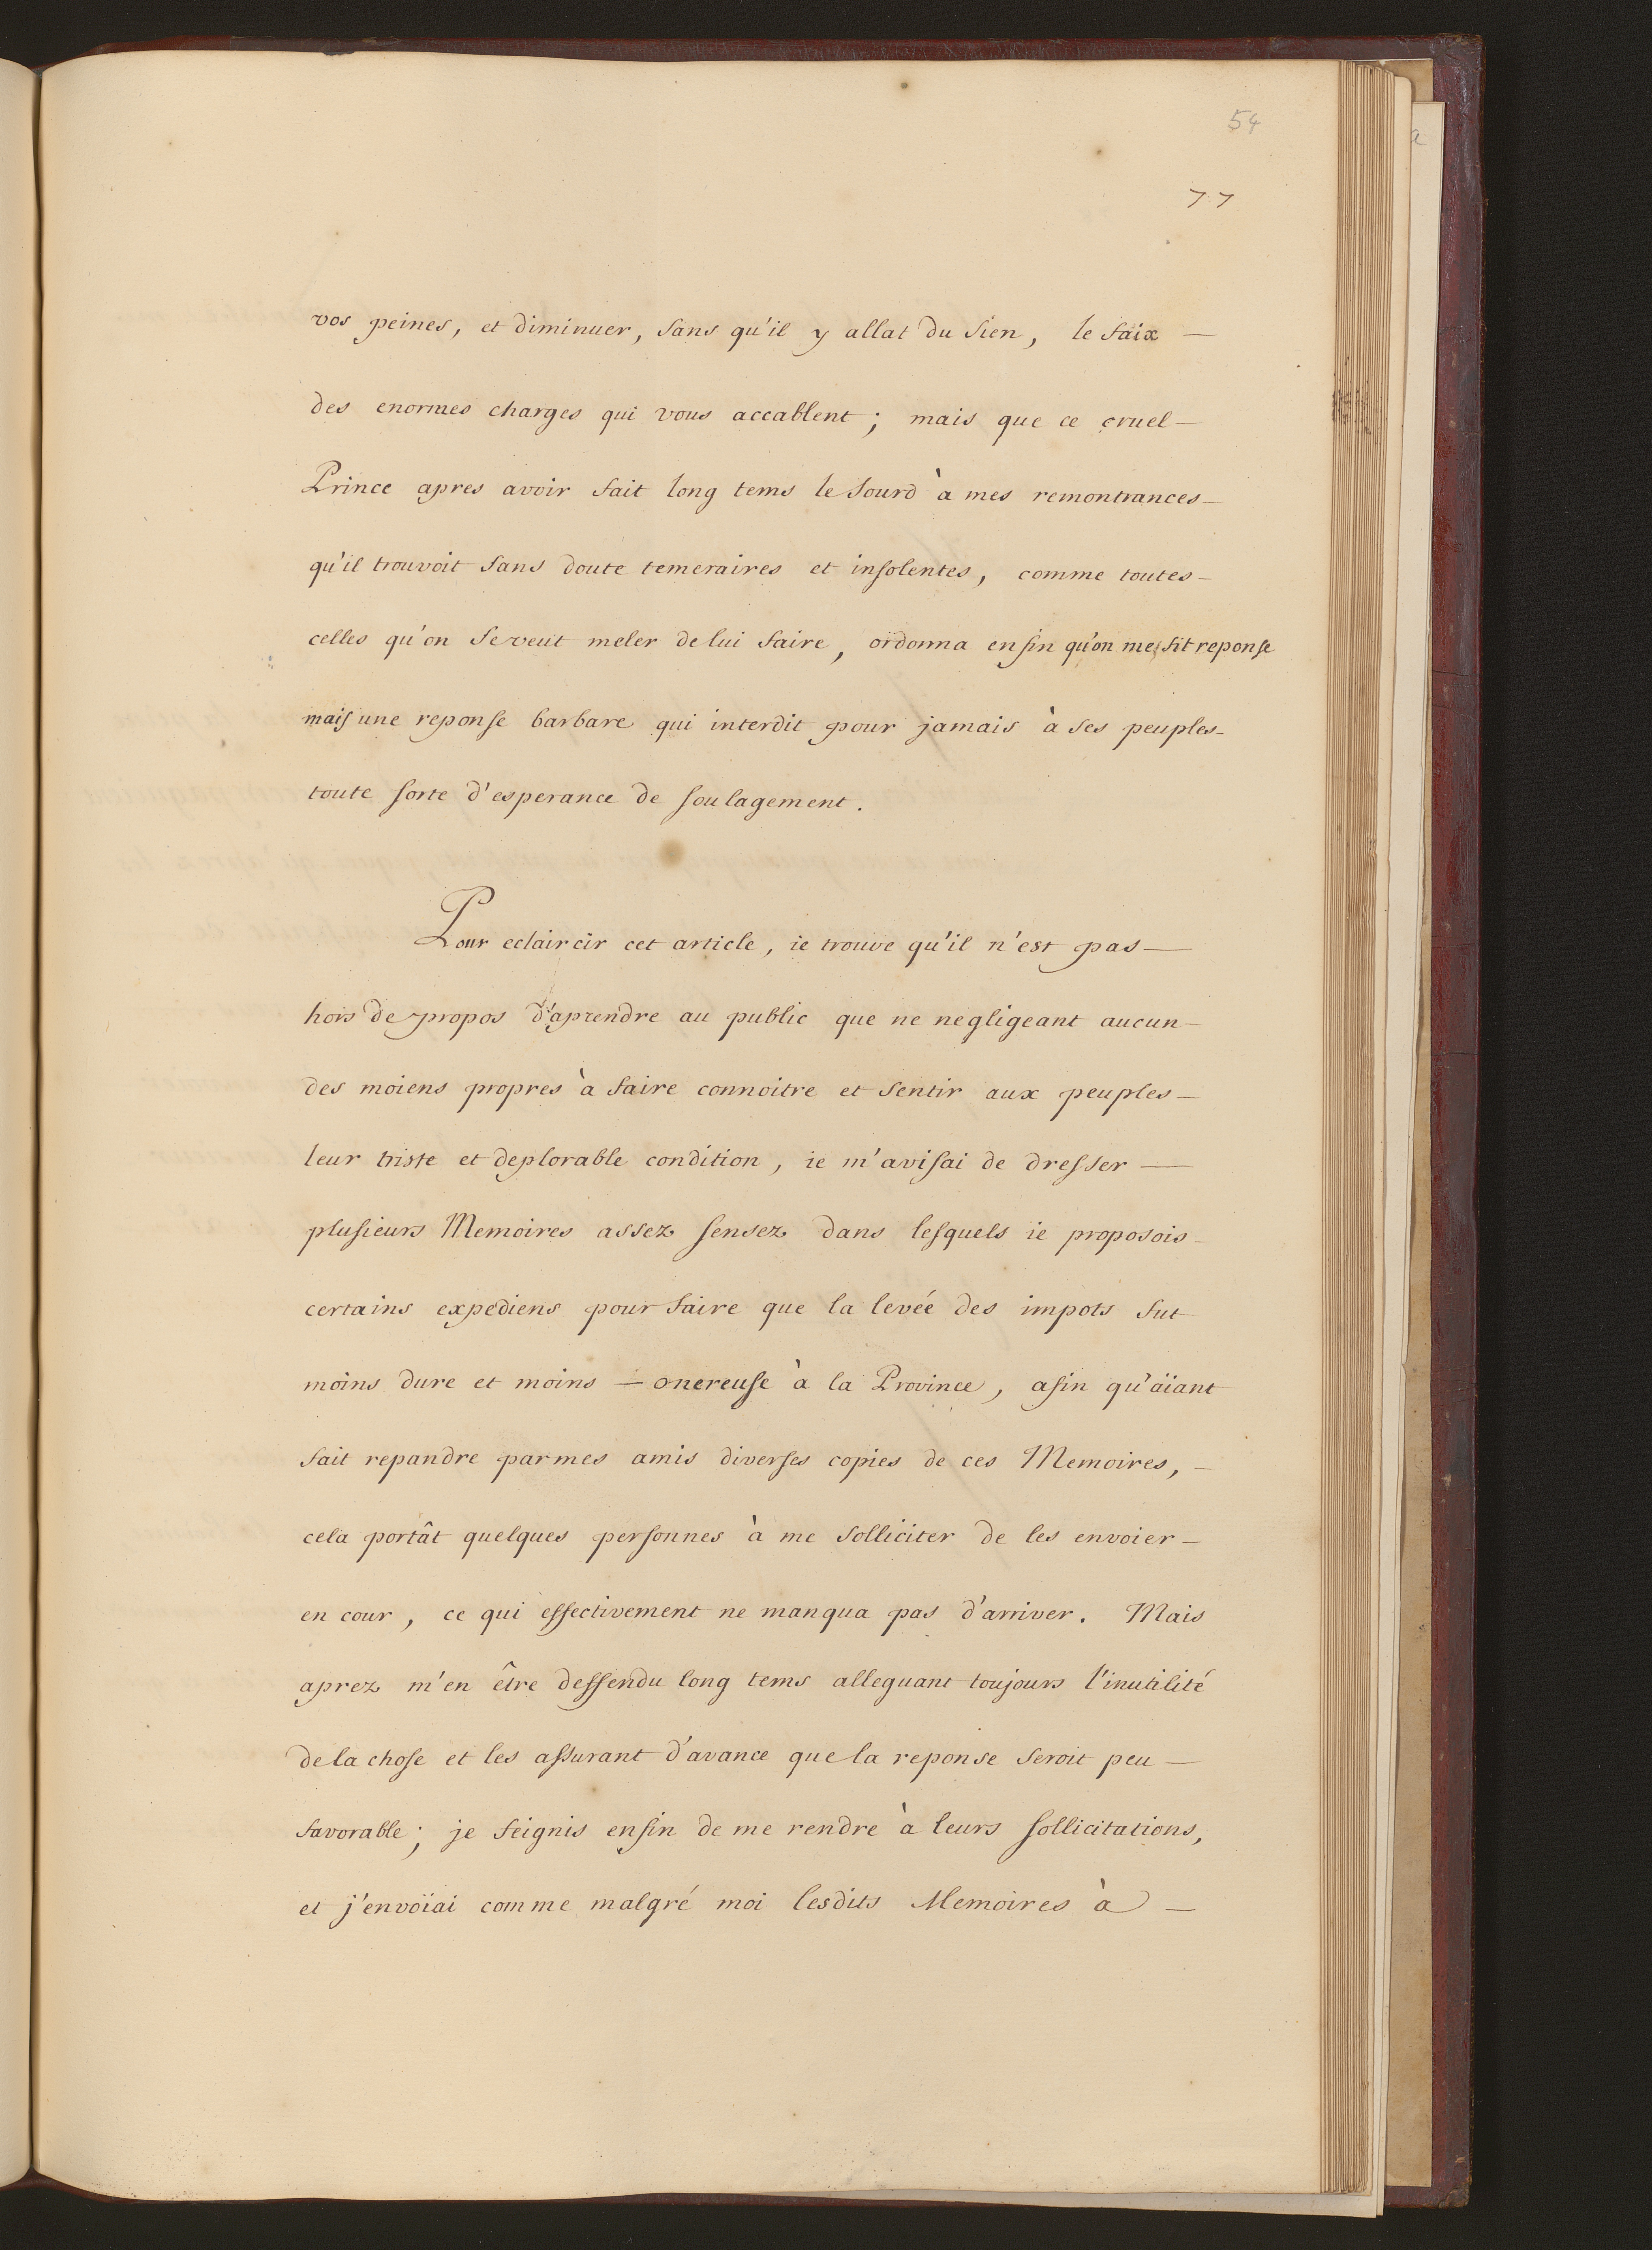 54
77
vos peines, et diminuer, sans qu'il y allat du sien, le faix —
des enormes charges qui vous accablent ; mais que ce cruel —
Prince apres avoir fait long tems le sourd à mes remontrances —
qu'il trouvoit sans doute temeraires et insolentes, comme toutes —
celles qu'on se veut meler de lui faire, ordonna enfin qu'on me fit reponse
mais une reponse barbare qui interdit pour jamais à ses peuples —
toute sorte d'esperance de soulagement.
Pour eclaircir cet article, ie trouve qu'il n'est pas —
hors de propos d'aprendre au public que ne negligeant aucun —
des moiens propres à faire connoitre et sentir aux peuples —
leur triste et deplorable condition, ie m'avisai de dresser —
plusieurs Memoires assez sensez dans lesquels ie proposois —
certains expediens pour faire que la levée des impots fut
moins dure et moins — onereuse à la Province, afin qu'aïant
fait repandre par mes amis diverses copies de ces Memoires, —
cela portât quelques personnes à me solliciter de les envoier —
en cour, ce qui effectivement ne manqua pas d'arriver. Mais
aprez m'en être deffendu long tems alleguant toujours l'inutilité
de la chose et les assurant d'avance que la reponse seroit peu —
favorable ; je feignis enfin de me rendre à leurs sollicitations,
et j'envoïai comme malgré moi lesdits Memoires à —